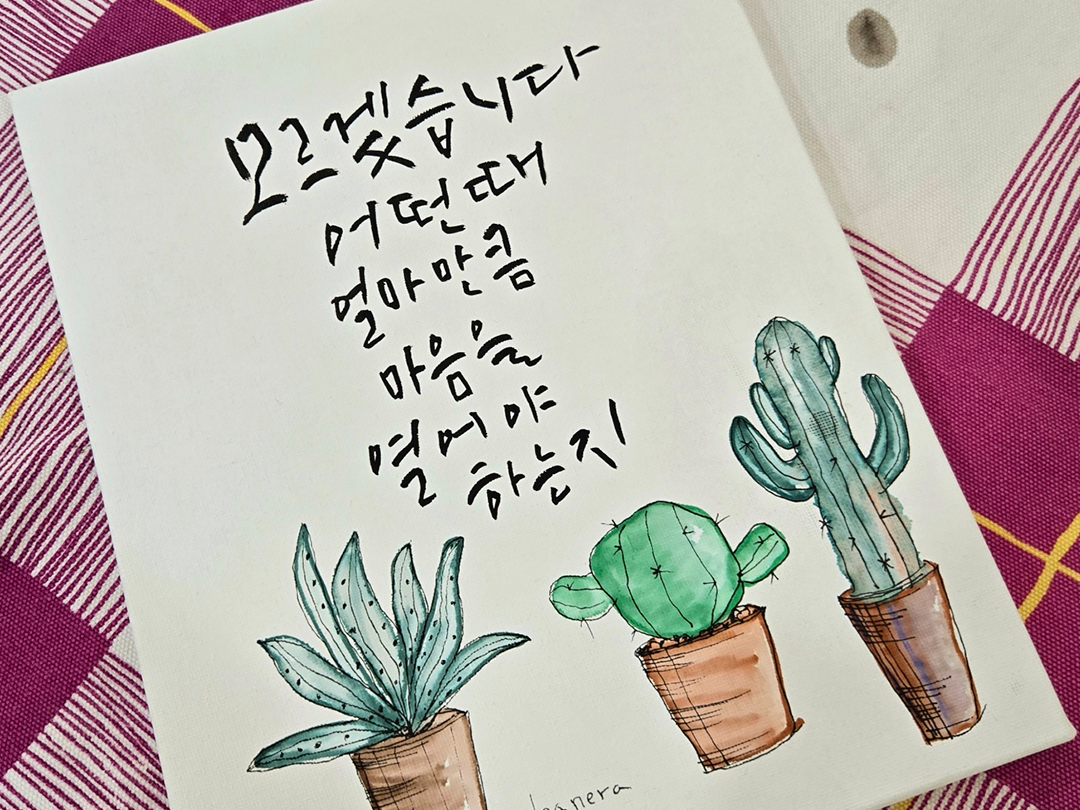 모르겠습니다
어떤때
얼마만큼
마음을
열어야
하는지